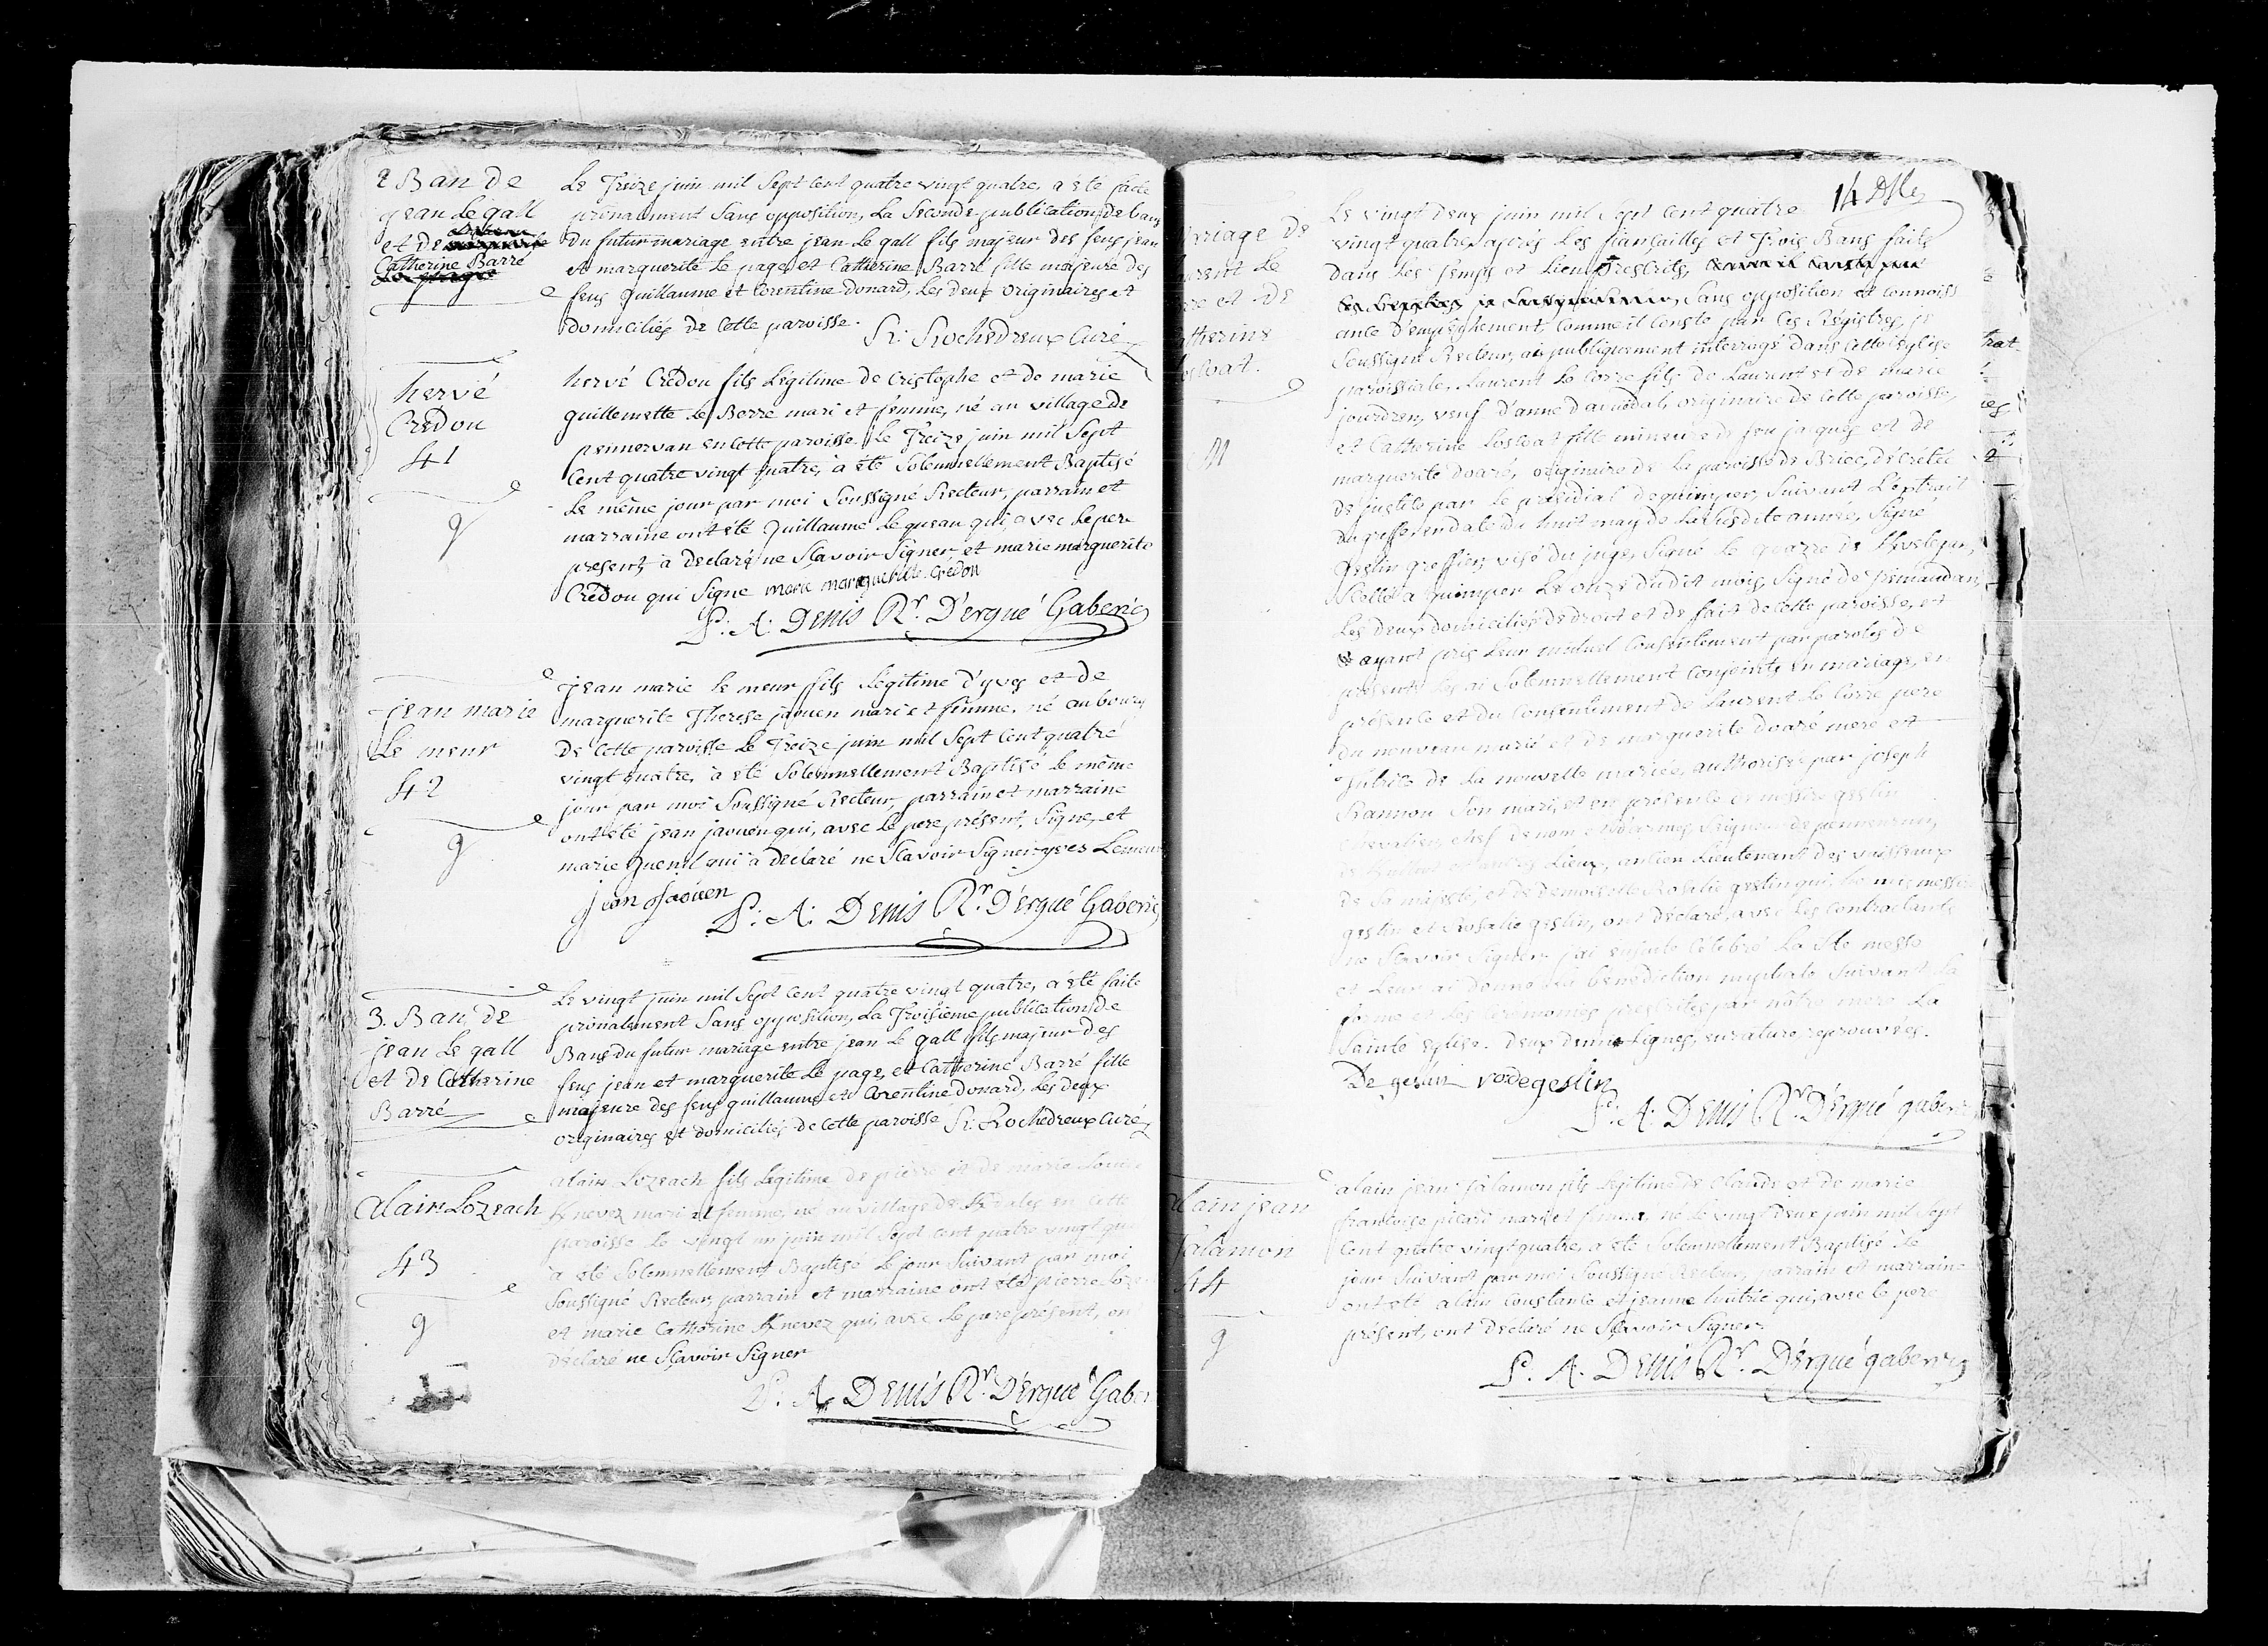 2 Ban de
jean Le gall
et de
Catherine Barré
Le Treize juin mil Sept Cent quatre vingt quatre, a été faite
prônalement Sans opposition, La Seconde publication de bans
Du futur mariage entre jean Le gall fils majeur des feus jean
et marguerite Le page, et Catherine Barré fille majeure des
feus guillaume et Corentine donard, Les deux originaires et
domiciliés de Cette paroisse.
R: Rochedreux Curé
hervé
Credou
41
g
hervé Credou fils Legitime de Cristophe et de marie
guillemette Le Berre mari et femme, né au village de
pennervan en Cette paroisse Le Treize juin mil Sept
Cent quatre vingt quatre, à été Solemnellement Baptisé
Le même jour par moi Soussigné Recteur, parrain et
marraine ont été guillaume Le gueau qui, avec Le pere
present, à declaré ne Sçavoir Signer, et marie marguerite
Credou qui Signe marie marguerite Credou
P: A: Denis Rr. D'ergué Gaberic
jean marie
Le meur
42
g
jean marie Le meur fils Légitime d'yves et de
marguerite Therese jaouen mari et femme, né au bourg
De Cette paroisse Le Treize juin mil Sept Cent quatre
vingt quatre, à été Solemnellement Baptisé Le même
jour par moi Soussigné Recteur, parrain et marraine
ont été jean jaouen qui, avec Le pere présent, Signe, et
marie guenel qui à declaré ne Sçavoir Signer yves Lemeur
jean Jaouen
P: A: Denis Rr. D'ergué Gaberic
3. Ban de
jean Le gall
et de Catherine
Barré
Le vingt juin mil Sept Cent quatre vingt quatre, a été faite
prônalement Sans opposition, La Troisième publication de
Bans du futur mariage entre jean Le gall fils majeur des
feus jean et marguerite Le page, et Catherine Barré fille
majeure des feus guillaume et Corentine donard, Les deux
originaires et domiciliés de Cette paroisse R: Rochedreux Curé
alain Lozeach
43
g
alain Lozeach fils Legitime de pierre et de marie
Knevez mari et femme, né au village de en Cette
paroisse Le vingt un juin mil Sept cent quatre vingt
à été Solemnellement Baptisé Le jour Suivant par moi
Soussigné Recteur, parrain et marraine ont été pierre
et marie Catherine Knevez qui, avec Le pere présent, on
déclaré ne Sçavoir Signer
P: A: Denis Rr. D'ergué Gaber
14
riage de
rent Le
re et de
therine
oat.
m
Le vingt deux juin mil Sept Cent quatre
vingt quatre, aprés Les fiançailles et Trois Bans faits
dans Les Temps et Lieu Prescrits,
Sans opposition et Connoiss
ance d'empêchement, Comme il Conste par Les Régistres, je
Soussigné Recteur, ai publiquement interrogé dans Cette Eglise
paroissiale, Laurent Le Corre fils de Laurent et de marie
jourdren, veuf d'anne originaire de Cette paroisse,
et Catherine fille mineure de feu jacques et de
marguerite doaré, originaire de La paroisse de Briec, décrétée
de justice par Le présidial de quimper, Suivant L'extrait
du greffe en date du huit may de La Susdite année, Signé
geslin greffier, visé du juge, Signé Le
Scellé a quimper Le onze dudit mois, Signé de
Les deux domiciliés de droit et de fait de Cette paroisse, et
ayant pris Leur mutuel Consentement par paroles de
présent, Les ai Solemnellement Conjoints en mariage, en
présence et du Consentement de Laurent Le Corre pere
du nouveau marié et de marguerite doaré mere et
tutrice de La nouvelle mariée, authorisée par joseph
Rannou Son mari, et en présence de messire geslin
Chevalier, chef de nom et d'armes, Seigneur de
et autres Lieux, ancien Lieutenant des vaisseaux
de Sa majesté, et de Demoiselle Rosalie geslin qui, hormis messire
geslin et Rosalie geslin, ont déclaré avec Les Contractants
ne Sçavoir Signer, j'ai ensuite Célébré La Ste messe
et Leur ai donné La bénédiction nuptiale Suivant La
forme et Les Ceremonies prescrites par nôtre mere La
Sainte Eglise. deux demie Lignes, en rature reprouvées.
De geslin rodegeslin
P: A: Denis Rr D'ergué gaber
alain jean
Salamon
44
g
alain jean Salamon fils Legitime de Claude et de marie
françoise picard mari et femme, né Le vingt deux juin mil Sept
Cent quatre vingt quatre, a été Solemnellement Baptisé Le
jour Suivant par moi Soussigné Recteur, parrain et marraine
ont été alain Constance et jeanne qui, avec le pere
présent, ont declaré ne Sçavoir Signer.
P. A. Denis Rr. D'ergué gaberic